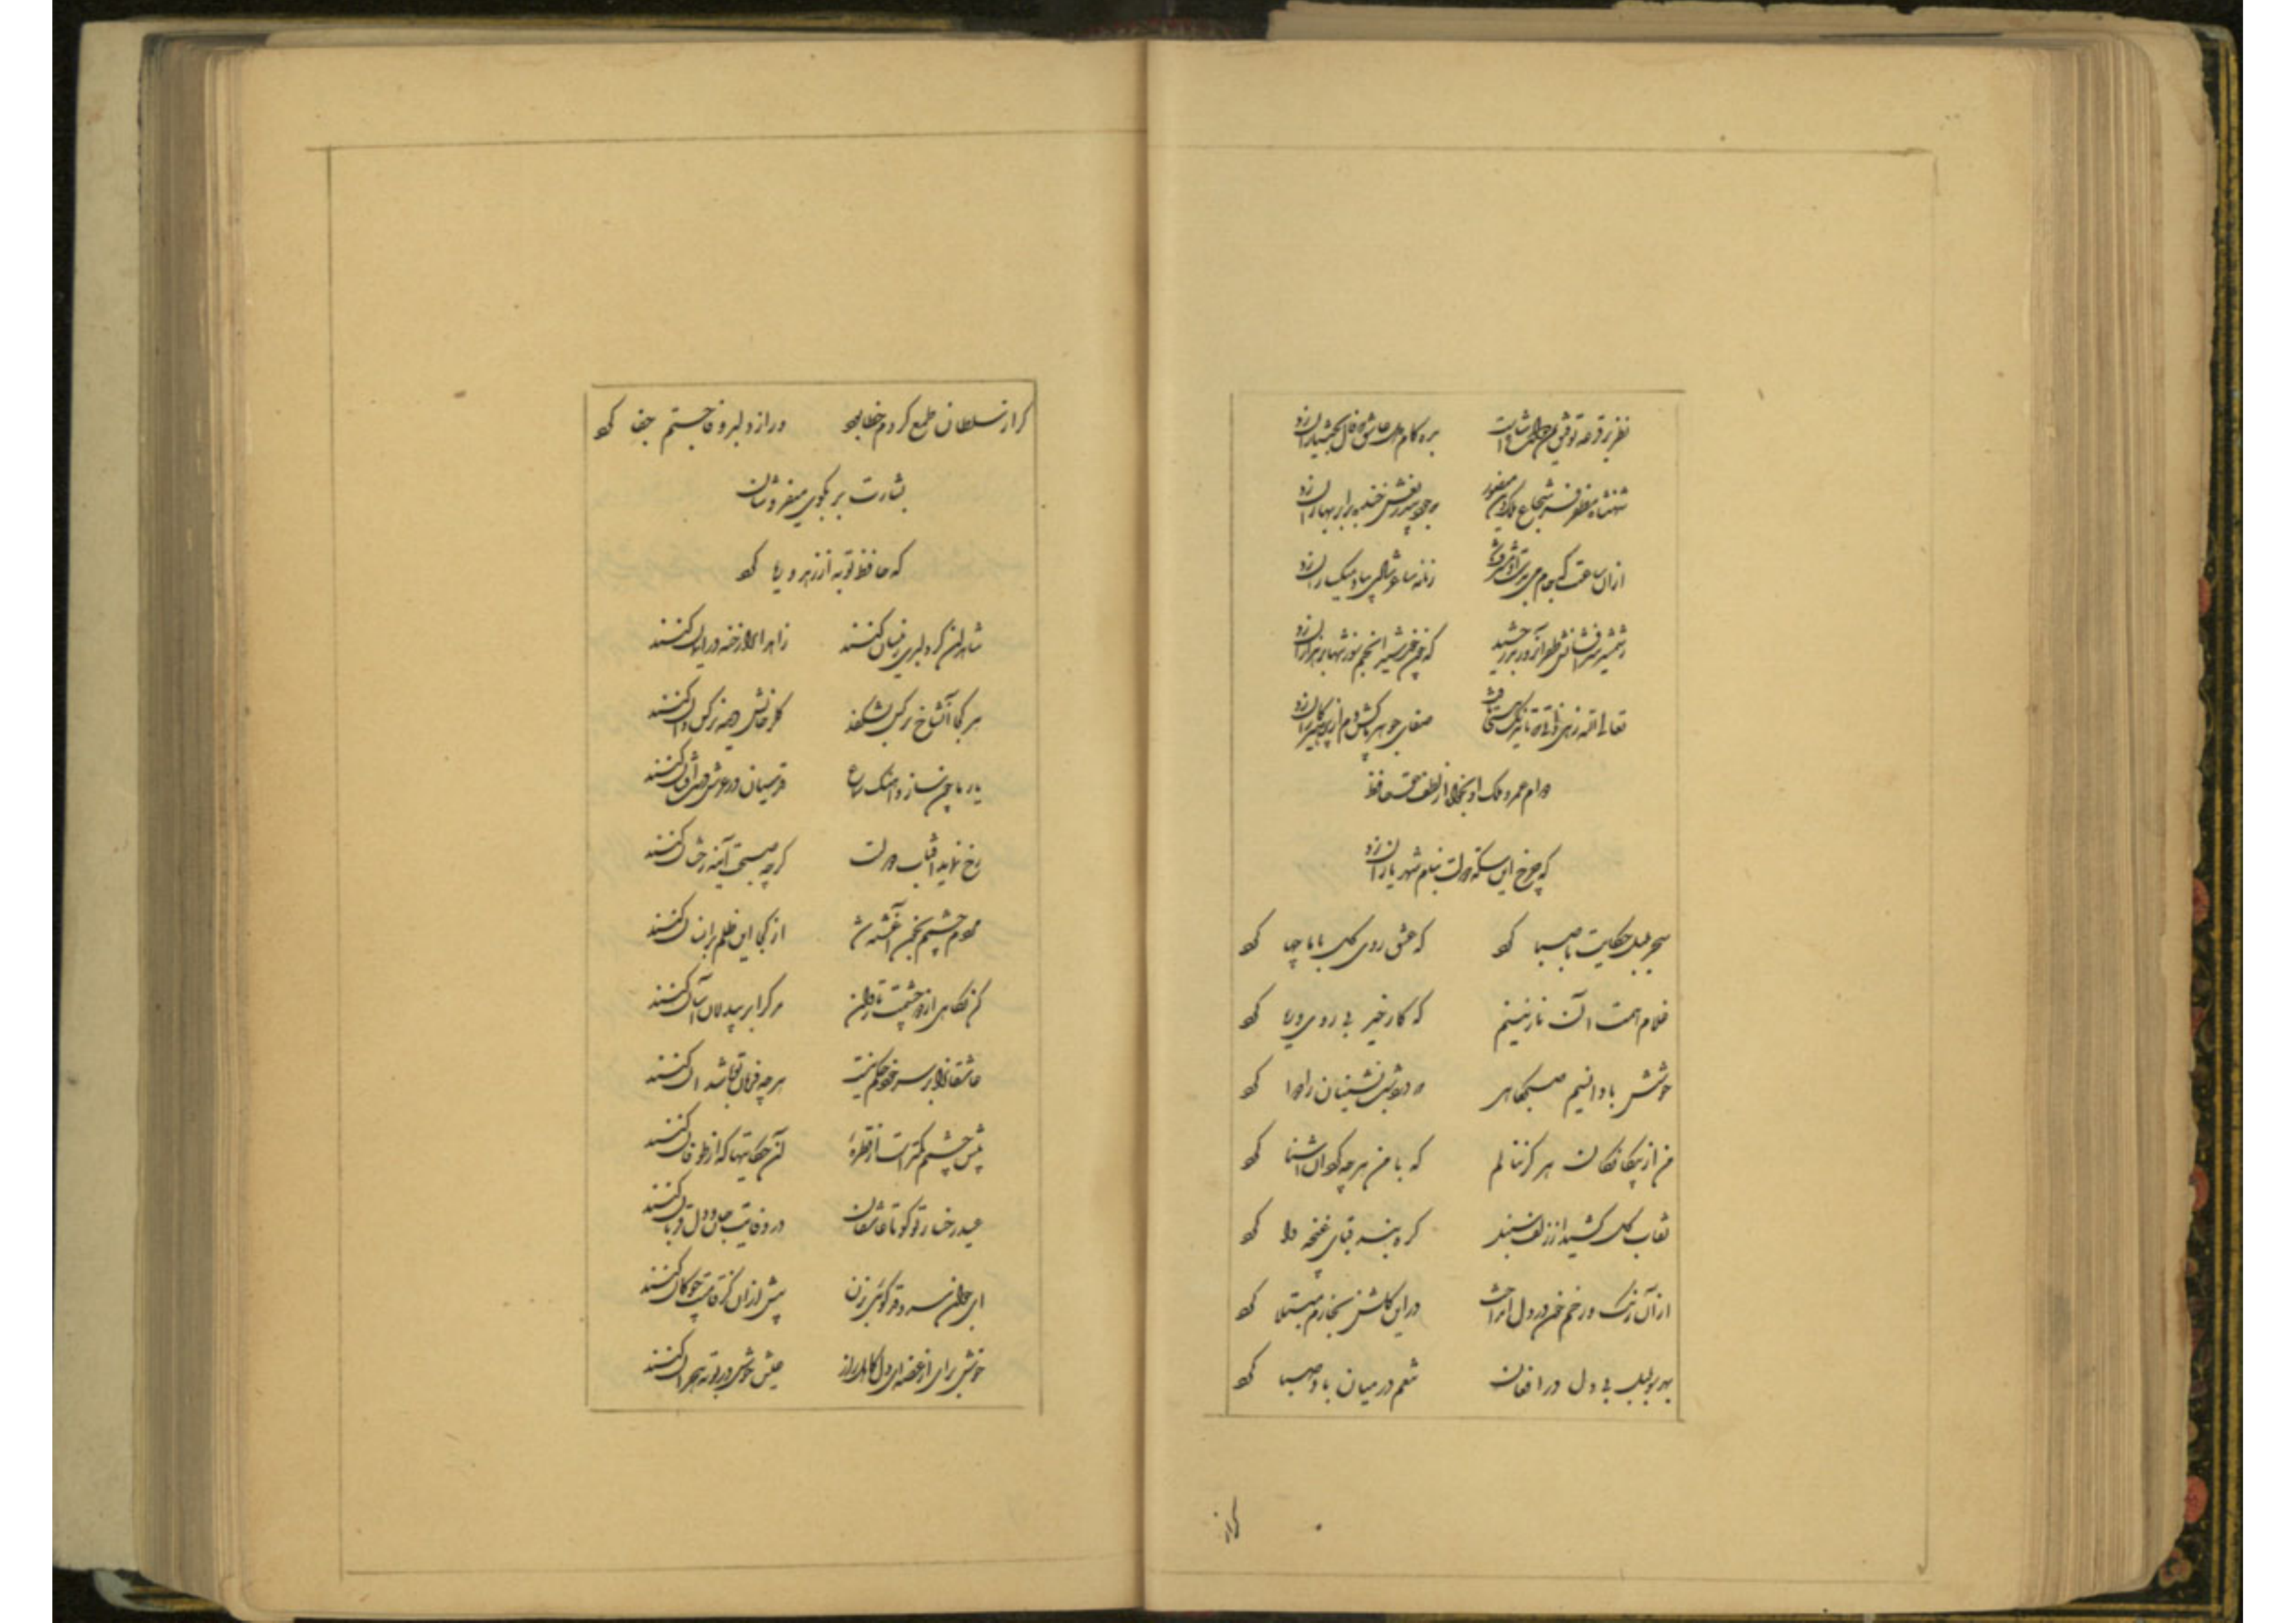 نظر بر قرعه توفیق و یمن دولت شاهست بده کام دل عاشق که فال بختیاران زد
شهنشاه مظفر فر شجاع ملک و دین منصور که جود بیدریغش خنده بر ابر بهاران زد
از آن ساعت که جام می بدست او مشرف شد زمانه ساغر شادی بیاد میگساران زد
ز شمشیر سرافشانش ظفر آنروز بدرخشید که چون خورشید انجم سوز تنها بر هزاران زد
تعالی الله زهی ذاتی که
دوام عمر و ملک او بخواه از لطف حق حافظ
که چرخ این سکه دولت بنام شهریاران زد
سحر بلبل حکایت با صبا کرد که عشق روی گل با ما چها کرد
غلام همت آن نازنینم که کار خیر بی روی و ریا کرد
خوشش باد آن نسیم صبحگاهی که درد شب نشینان را دوا کرد
من از بیگانگان هرگز ننالم که با من هرچه کرد آن آشنا کرد
نقاب گل کشید از زلف سنبل گره بند قبای غنچه وا کرد
از آن رنگ رخم خون در دل انداخت در این گلشن بخارم مبتلا کرد
بهر سو بلبل بی دل در افغان تنعم در میان باد صبا کرد
گر از
گر از سلطان طمع کردم خطا بود ور از دلبر وفا جستم جفا کرد
بشارت بر بکوی میفروشان
که حافظ توبه از زهد و ریا کرد
شاهدان گر دلبری زینسان کنند زاهدان را رخنه در ایمان کنند
هر کجا آن شاخ نرگس بشکفد گلرخانش دیده نرگس دان کنند
یار ما چون سازد آهنگ سماع قدسیان در عرش دست افشان کنند
رخ نماید آفتاب دولتت گر چو صبحت آینه رخشان کنند
مردم چشمم بخون آغشته شد از کجا این ظلم بر انسان کنند
کن نگاهی از دو چشمت تا در آن مرگ را بر بیدلان آسان کنند
عاشقانرا بر سر خود حکم نیست هر چه فرمان تو باشد آن کنند
پیش چشمم کمتر است از قطره آن حکایتها که از طوفان کنند
عید رخسار تو کو تا عاشقان در وفایت جان و دل قربان کنند
ای جوان سرو قد گوئی بزن پیش از آن کز قامتت چوگان کنند
خوش برای از غصه ای دل کاهل راز عیش خوش در بوته هجران کنند